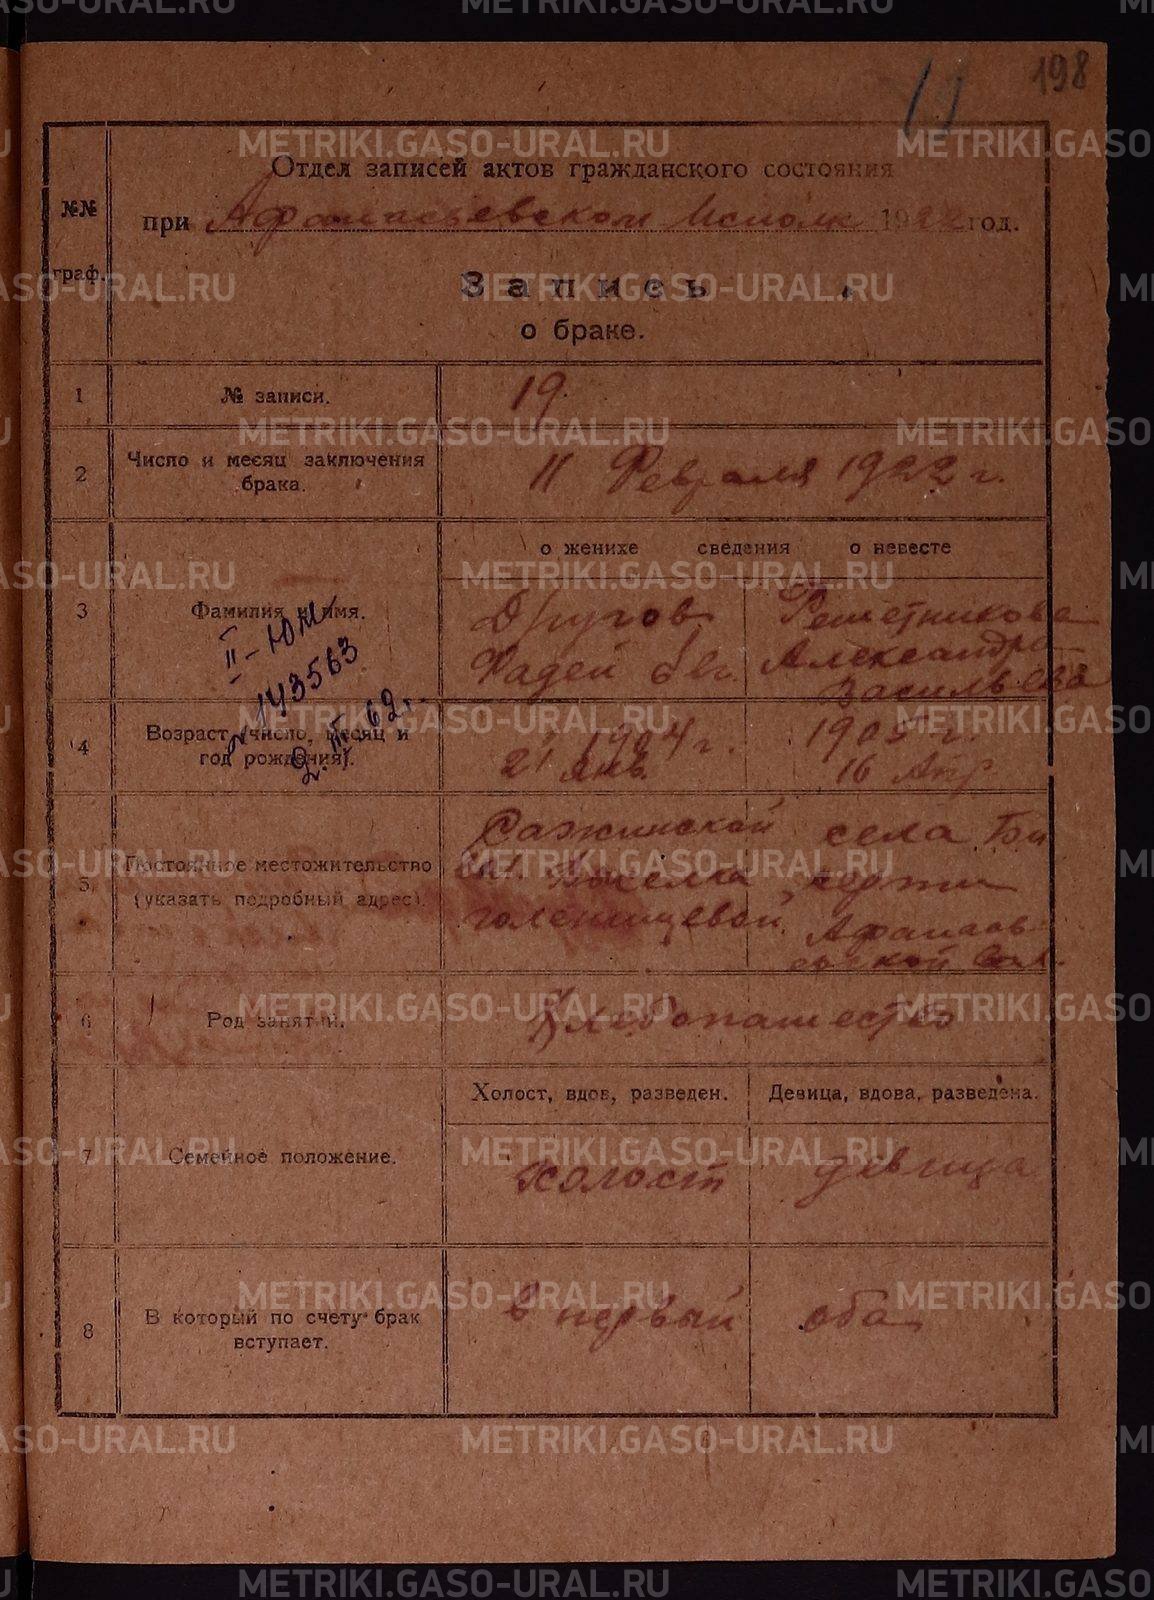 198
Отдел записей актов гражданского состояния
№№ граф.
при Афанасьевском Исполк 1922 год.
Запись
о браке.
1 № записи. 19.
2 Число и месяц заключения брака. 11 Февраля 1922 г.
о женихе сведения о невесте
3 Фамилия и имя.
Другов Решетникова
Фадей Александра
Васильева
II-ЮМ
143563
2.III.62 г.
4 Возраст (число, месяц и год рождения).
1904 г. 1905 г.
21 янв. 16 Апр.
5 Постоянное местожительство (указать подробный адрес).
Сажинской села
Выселка
голенищевой Афанась
евской Вол.
6 Род занятий. Хлебопашество
Холост, вдов, разведен. Девица, вдова, разведена.
7 Семейное положение. Холост девица
8 В который по счету брак вступает. в первый оба
METRIKI.GASO-URAL.RU